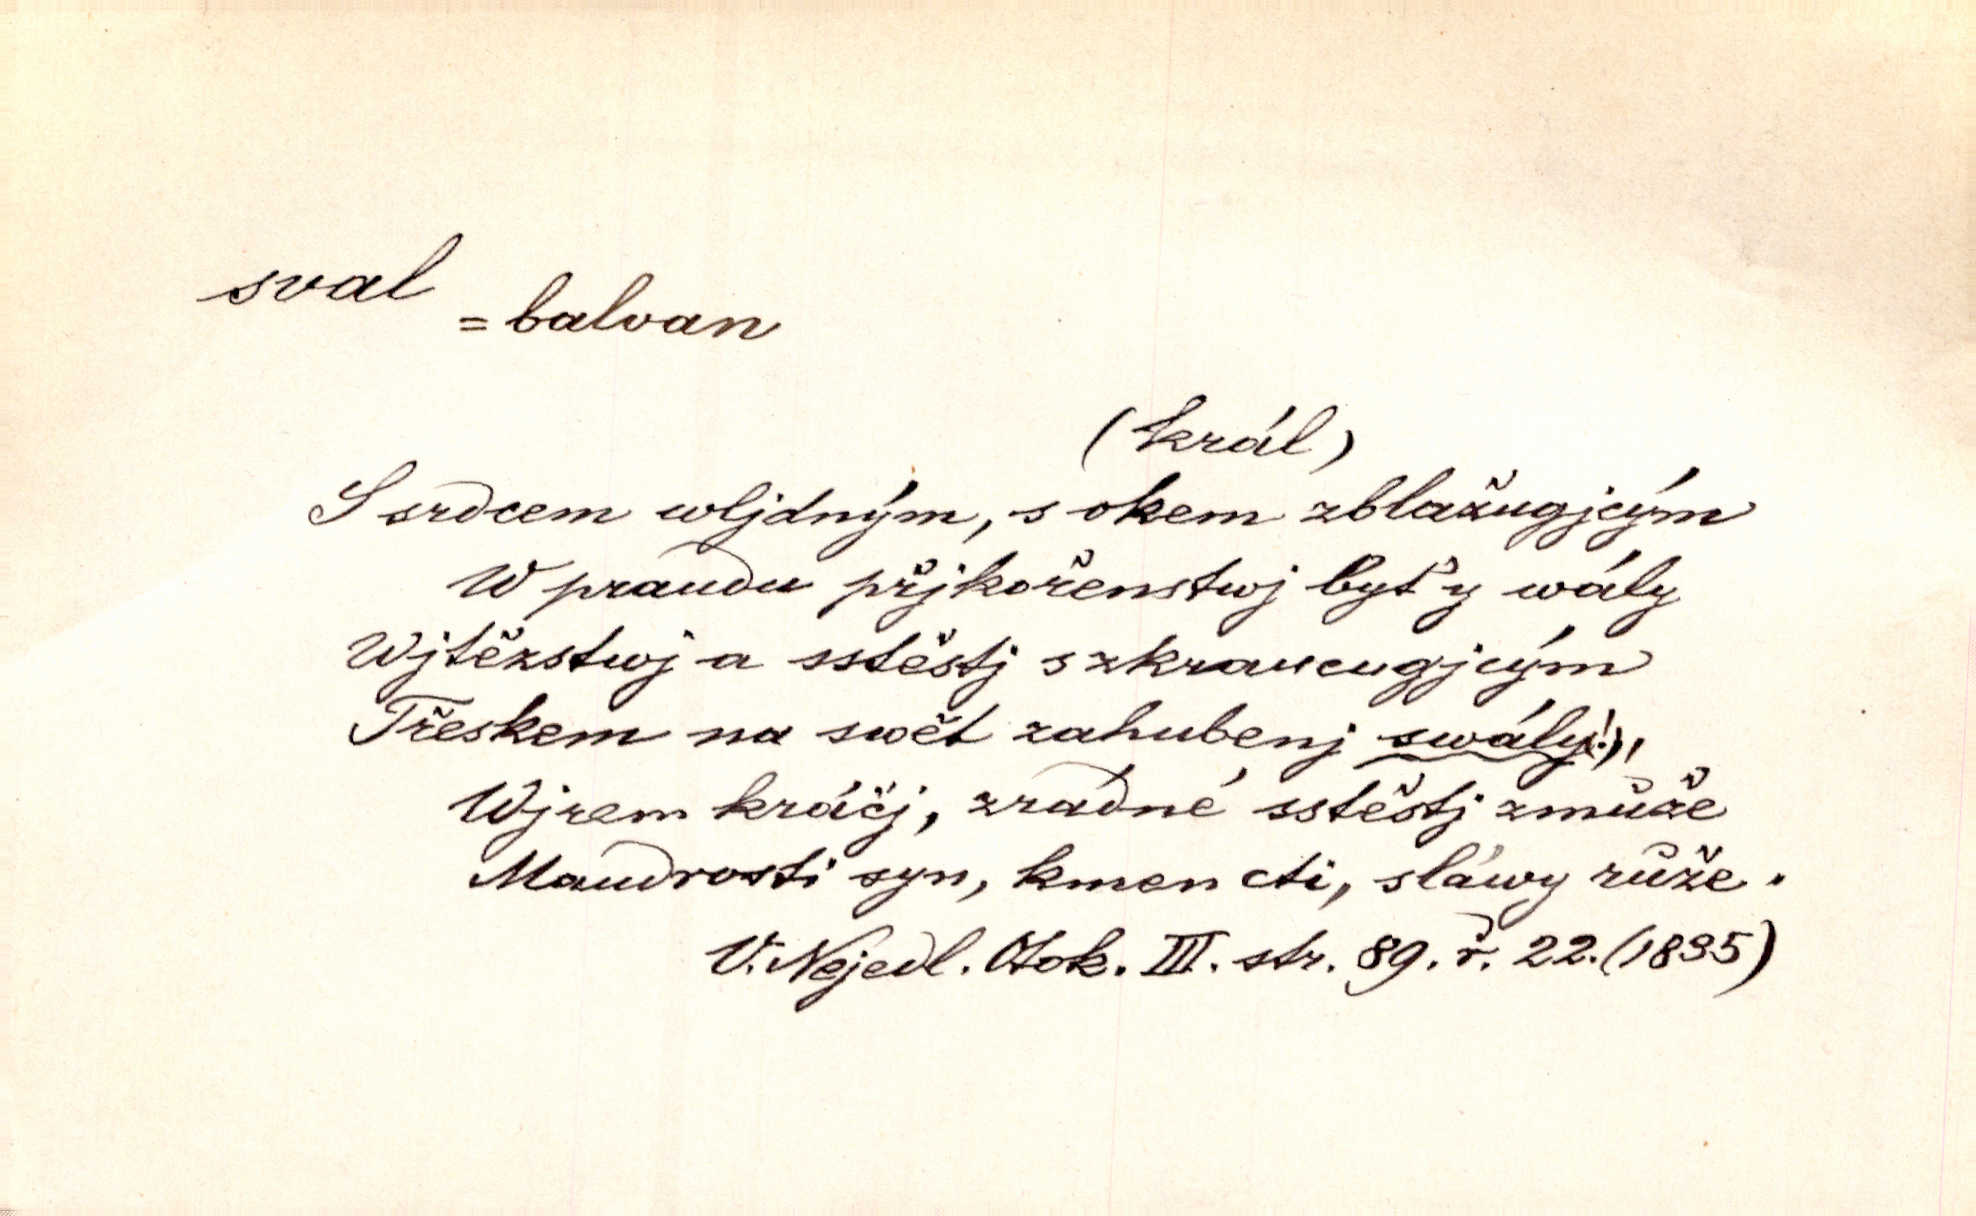 sval
= balvan
(král)
S srdcem wljdným, s okem zblažugjcým
W praudu přjkořenstwj byť y wály
Wjtězstwj a sstěstj s zkraucugjcým
Třeskem na swět zahubenj swály(!),
Wjrem kráčj, zradné sstěstj zmůže
Maudrosti syn, kmen cti, sláwy růže.
V. Nejedl. Otok. III. str. 89. ř. 22. (1835)